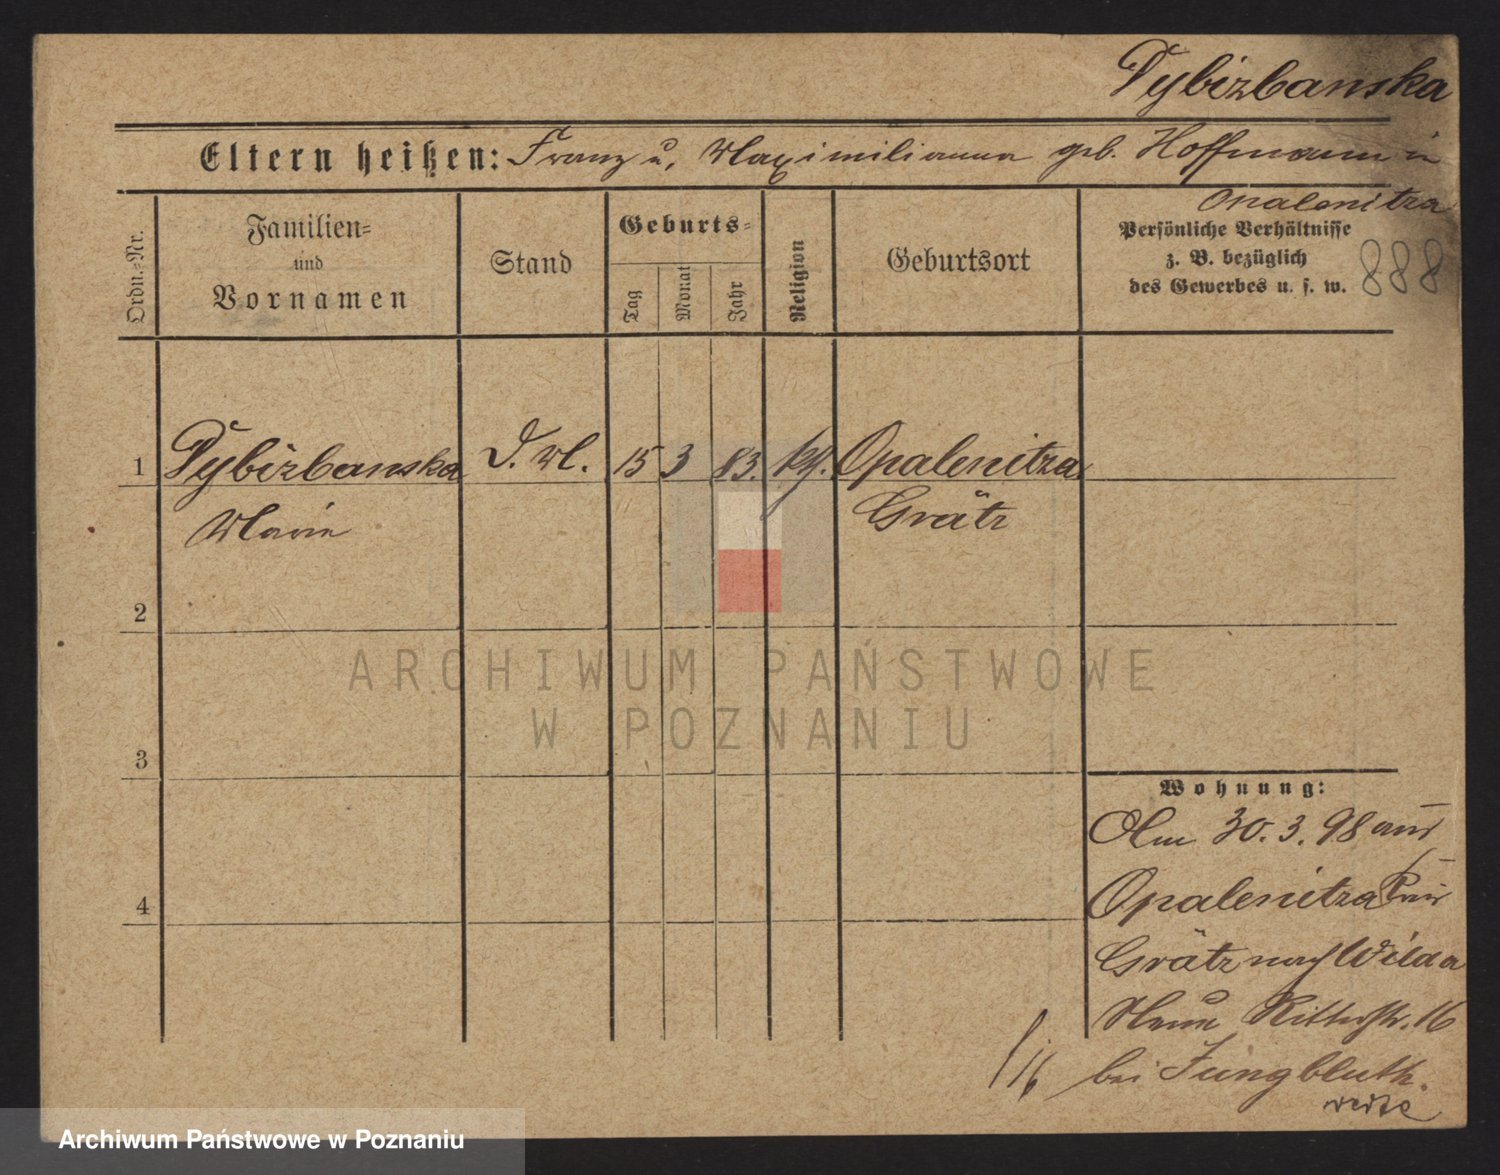 Pybizbanska
Eltern heißen: Franz u. Maximilianna geb. Hoffmann in
Opalenitza
Ordn.-Nr.
Familien-
und
Vornamen
Stand
Geburts-
Tag
Monat
Jahr
Religion
Geburtsort
Persönliche Verhältnisse
z. B. bezüglich
des Gewerbes u. s. w.
888
1 Pybizbanska D. M. 15 3 83. kth. Opalenitza
Marie Grätz
2
3
4
ARCHIWUM PAŃSTWOWE
W POZNANIU
Wohnung:
Am 30.3.98 aus
Opalenitza Kreis
Grätz nach Wilda
Ritterstr. 16
bei Jungbluth.
1/16
Archiwum Państwowe w Poznaniu